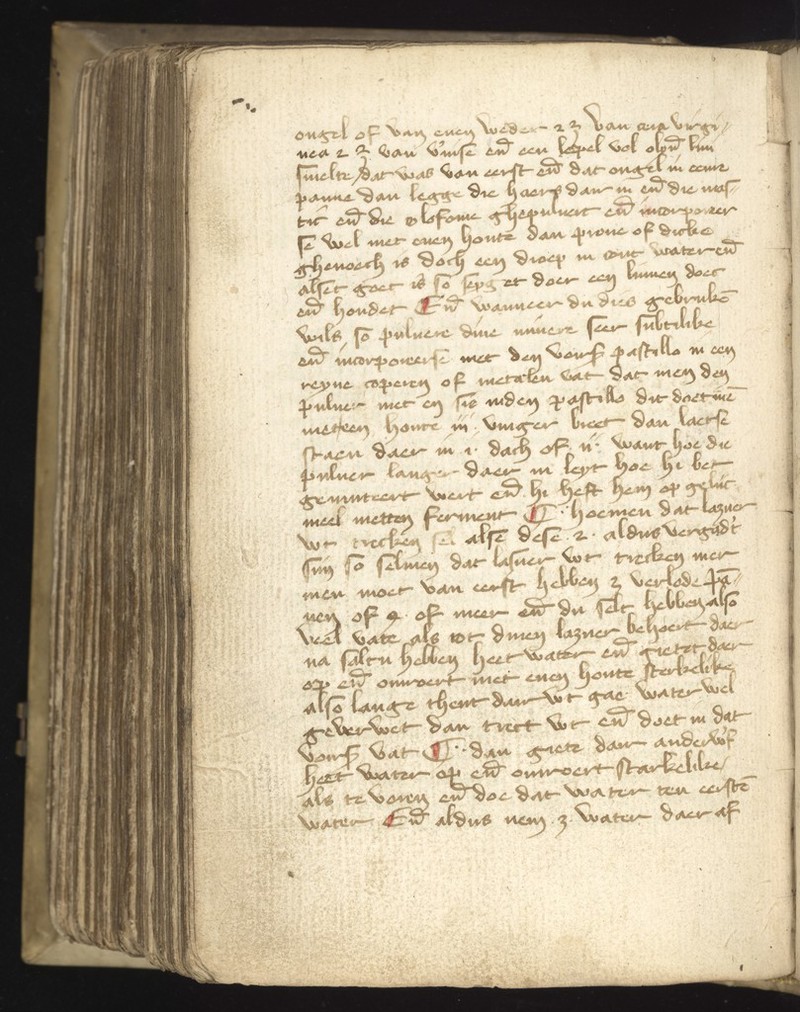 ongel of van enen weder 2 ʒ van cera virgi-
nea 2 ʒ van vernise eñ een lepel vol olijn
smelte dat was van eerst eñ dat ongel in eenre
panne dan legge die haers daer in eñ die mas-
tic eñ die colofonie ghepulvert eñ incorporeer
se wel met enen houte dan prove of dicke
ghenoech is doch een droep in cout water eñ
alset goet is so sygget doer een linnen doec
eñ houdet Eñ wanneer du dies gebrukē
wils so pulvere dine minere seer subtilike
eñ incorporeerse met den vorß pastillo in een
reyne coperen of metalen vat dat men den
pulver met en sie inden pastillo dit doet mē
met een houte iii vinger breet dan laetse
staen daer in 1 dach of ii want hoe die
pulver langer daer in leyt hoe hi bet
gemineert wert eñ hi heft hem op gelijc
meel metten ferment ¶ hoemen dat lazuer
wt trecken sel alse dese 2 aldus vergadt
sijn so selmen dat lasuer wt trecken mer
men moet van eerst hebben 3 verlode pā-
nen of 4 of meer eñ du selt hebben also
veel vate als tot dinen lazuer behoert daer
na saltu hebben heet water eñ gietet daer
op eñ omroert met enen houte sterkelike
also lange thent daer wt gae water wel
geverwet dan trect wt eñ doet in dat
vorß vat ¶ dan giete daer anderwf
heet water op eñ omroert starkelike
als te voren eñ doe dat water ten eerstē
water Eñ aldus nem 3 water daer af